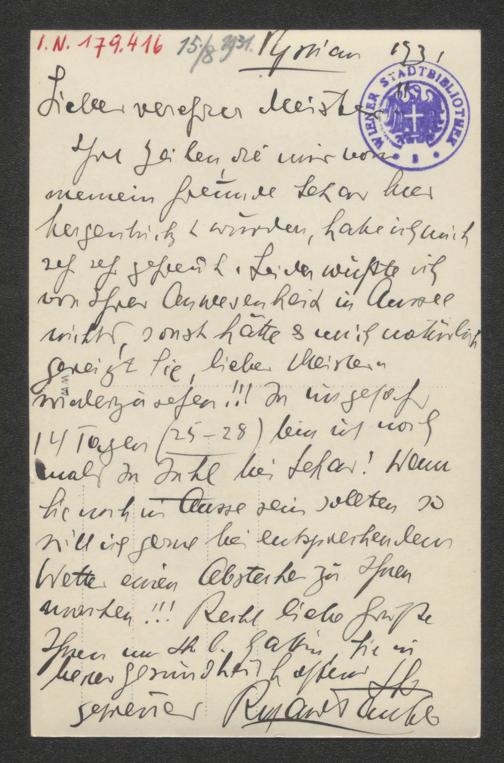 I.N. 179.416 15/8 1931. 1931
WIENER STADTBIBLIOTHEK
Lieber verehrter Meister
Ihre Zeilen, die mir von
meinem Freunde Lehar hier
wurden, habe ich mich
sehr sehr gefreut. Leider wußte ich
von Ihrer Anwesenheit in Aussee
nichts, sonst hätte es mich natürlich
gereizt Sie, lieber Meister
wiederzusehen!!! In ungefähr
14 Tagen (25-28) bin ich noch
mals in Ischl bei Lehar! Wenn
Sie noch in Aussee sein sollten so
will ich gerne bei entsprechendem
Wetter einen Abstecher zu Ihnen
machen!!! Recht liebe Grüße
Ihnen und Ihrer l. Gattin Sie in
bester Gesundheit hoffend Ihr
getreuer Richard Tauber